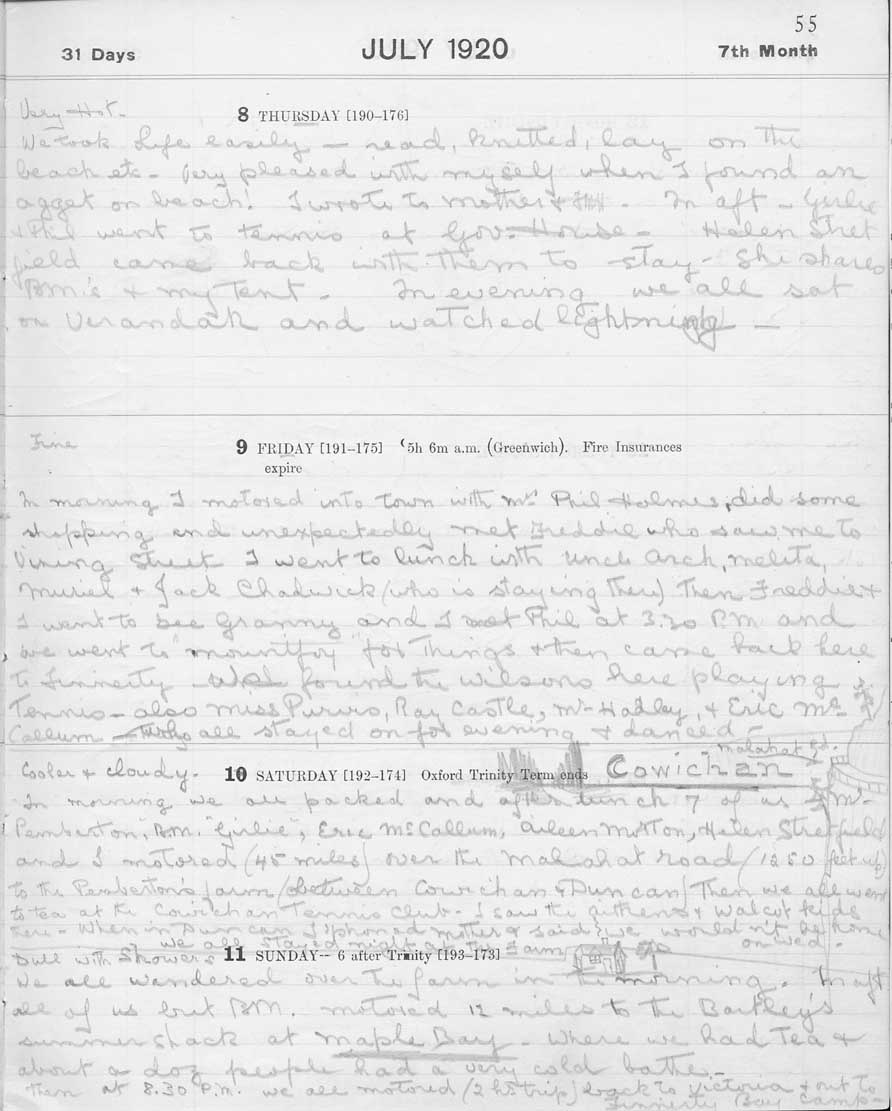 55
31 Days JULY 1920 7th Month
Very Hot.
8 THURSDAY [190–176]
We took Life easily – read, knitted, lay on the
beach etc – Very pleased with myself when I found an
agget on beach! I wrote to Mother &. In aft – Girlie
& Phil went to tennis at Gov. House – Helen Stret
field came back with them to stay – She shares
B.M.'s & my tent – In evening we all sat
on Verandah and watched lightning –
Fine
9 FRIDAY [191–175] 5h 6m a.m. (Greenwich). Fire Insurances
expire
In morning I motored into town with Mrs Phil Holmes, did some
shopping and unexpectedly met Freddie who saw me to
Vining Street I went to lunch with Uncle Arch, Melita,
Muriel & Jack Chadwick (who is staying there) Then Freddie &
I went to see Granny and I met Phil at 3.30 P.M and
we went to "Mountjoy" for Things & then came back here
to Finnerty found the Wilsons here playing
Tennis – also Miss Purvis, Ray Castle, Mr Hadley, & Eric Mc
Callum all stayed on for evening & danced –
Malahat Rd.
Cooler & cloudy.
10 SATURDAY [192–174] Oxford Trinity Term ends Cowichan
In morning we all packed and after lunch 7 of us Mr
Pemberton, B.M. "Girlie", Eric McCallum, Aileen Helen Stretfield
and I motored (45 miles) over the Malahat road (1250 feet up)
to the Pemberton's farm (between Cowichan & Duncan) Then we all went
to tea at the Cowichan Tennis Club – I saw the & Walcot kids
there – When in Duncan I 'phoned Mother & said we wouldn't be home
on Wed.
we all stayed night at the Farm
Dull with Showers
11 SUNDAY–6 after Trinity [193–173]
We all wandered over the farm in the morning. In aft
all of us but B.M. motored 12 miles to the
summer shack at Maple Bay – Where we had Tea &
about a doz people had a very cold bathe –
Then at 8.30 P.M. we all motored (2 hrs trip) back to Victoria & out to
Finnerty Bay Camp –